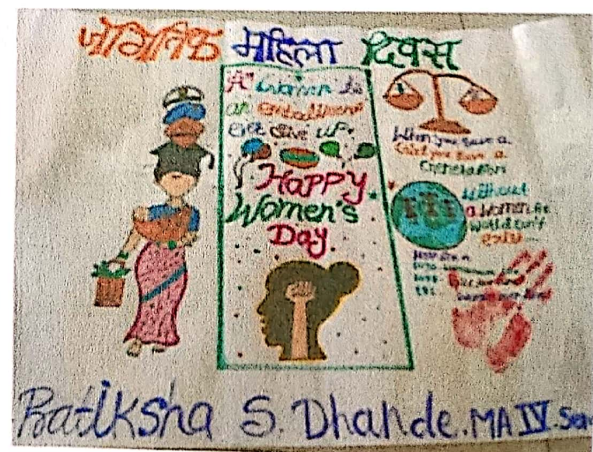 जागतिक महिला दिवस
A Women is
an embodiment
give up.
HAPPY
Women's
Day.
When you save a
Girl, you save a
Generation
Without
a Women the
World can't
exist
Pratiksha S. Dhande. MA IV Sem